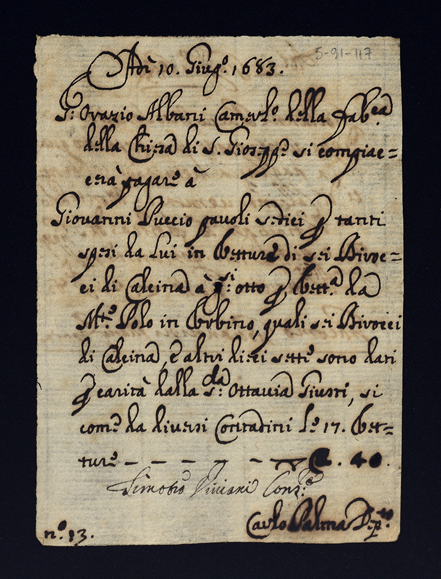 5-91-117
Adì 10. Giug.o 1683.
S.r Orazio Albani Camerl.o della fab.ca
della Chiesa di S. Gioseppe si compiac=
cerà pagare à
Giovanni Puccio pavoli sedici p tanti
spesi da lui in vetture di sei
di Calcina à otto p vett.a da
M.te Polo in Urbino, quali sei
di Calcina, e altri dieci sette sono dati
p carità dalla S.ra Ottavia Giusti, si
come da diversi Contadini le 17. vet=
ture — — — — — — 40.
Viviani
Carlo Palma
n.o 13.